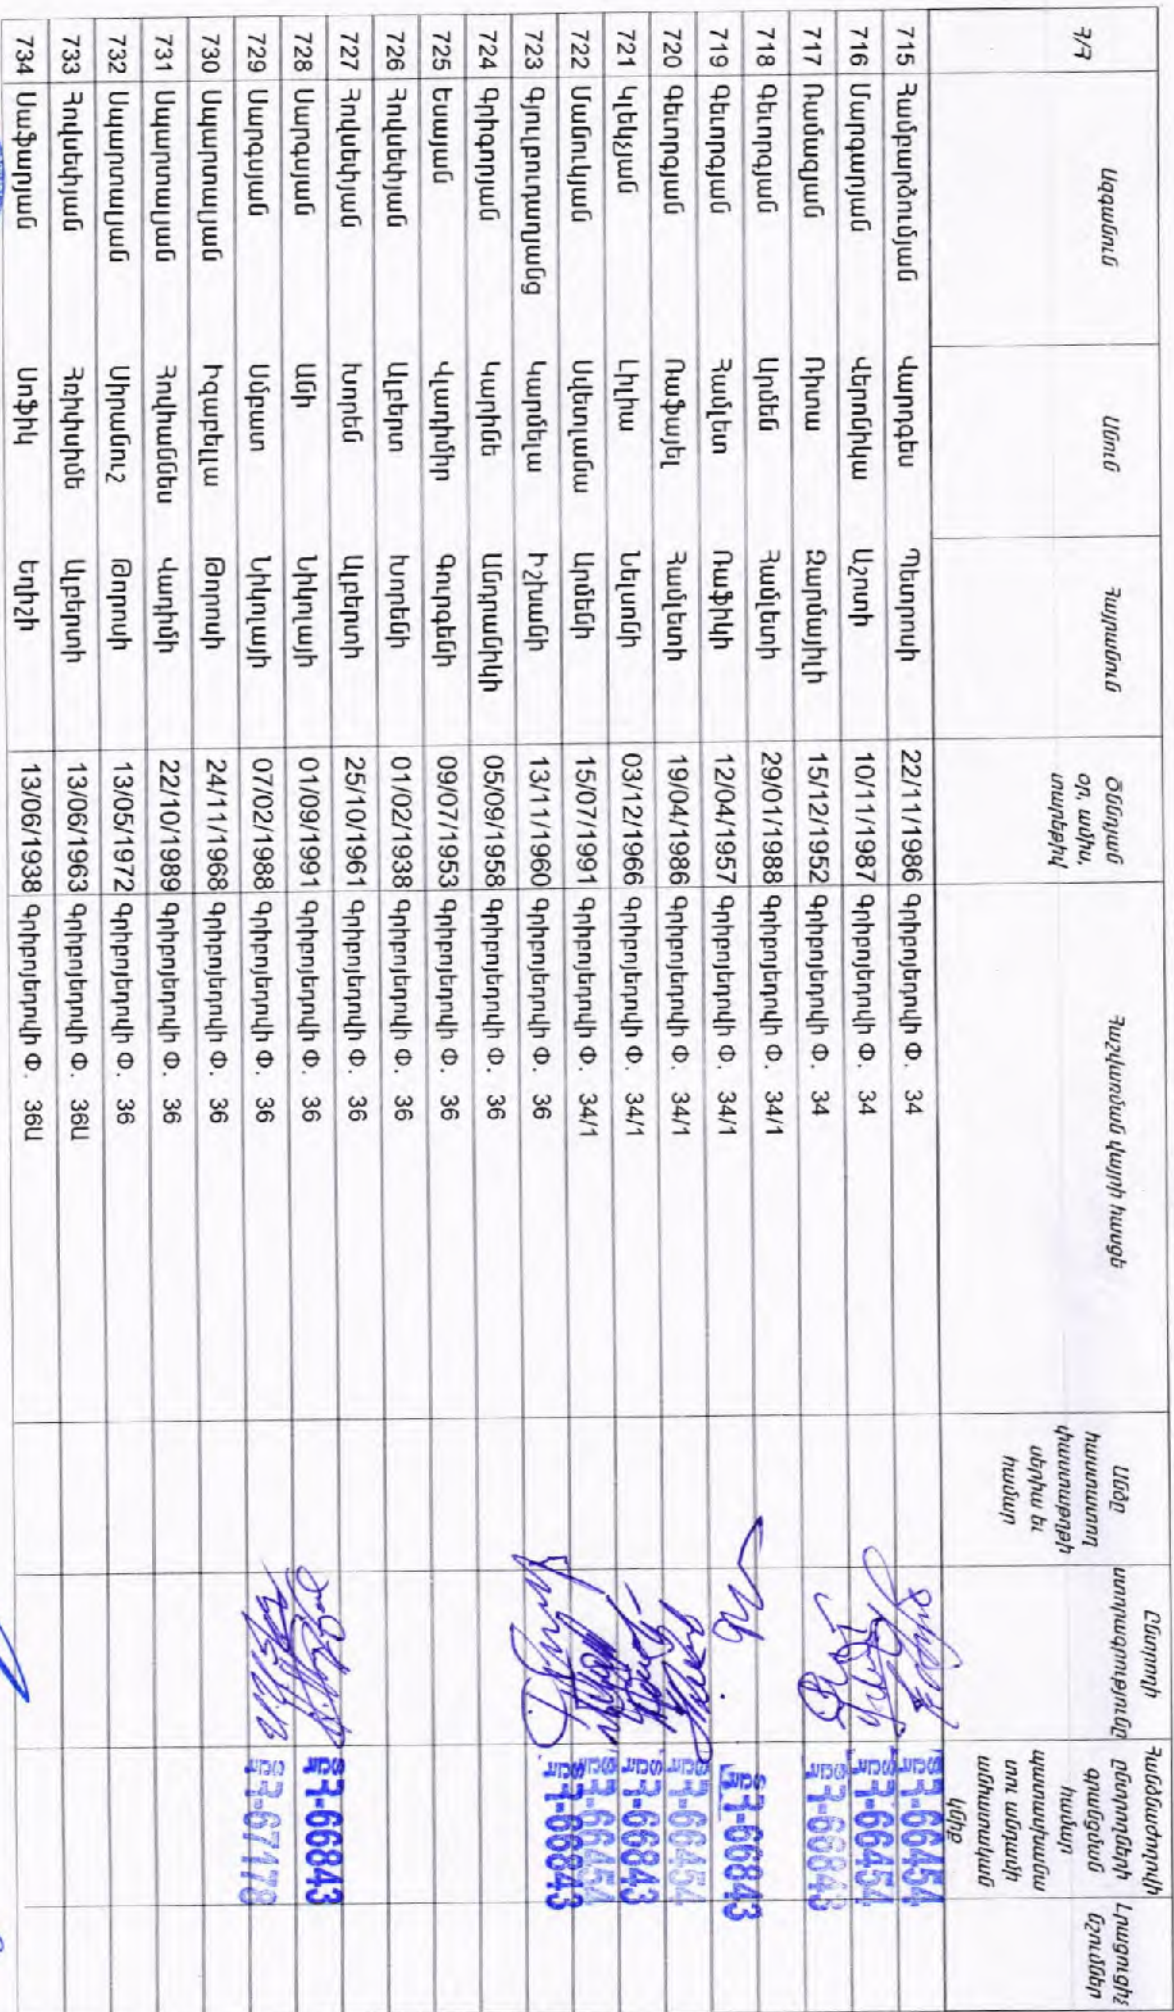 Հ/Հ Ազգանուն Անուն Հայրանուն Ծննդյան օր, ամիս, տարեթիվ Հաշվառման վայրի հասցե Անձը հաստատող փաստաթղթի սերիա եւ համար Ընտրողի ստորագրությունը Հանձնաժողովի ընտրողների գրանցման համար պատասխանատու անդամի անհատական կնիք Լրացուցիչ նշումներ
715 Համբարձումյան Վարդգես Պետրոսի 22/11/1986 Գրիբոյեդովի Փ. 34 ՏԸՀ Դ-66454
716 Մարգարյան Վերոնիկա Աշոտի 10/11/1987 Գրիբոյեդովի Փ. 34 66454
717 Ռամազյան Ռիտա Զարմայիլի 15/12/1952 Գրիբոյեդովի Փ. 34 66843
718 Գեւորգյան Արմեն Համլետի 29/01/1988 Գրիբոյեդովի Փ. 34/1
719 Գեւորգյան Համլետ Ռաֆիկի 12/04/1957 Գրիբոյեդովի Փ. 34/1 66843
720 Գեւորգյան Ռաֆայել Համլետի 19/04/1986 Գրիբոյեդովի Փ. 34/1 66454
721 Կլեկչյան Լիլիա Նելսոնի 03/12/1966 Գրիբոյեդովի Փ. 34/1 66843
722 Մանուկյան Սվետլանա Արմենի 15/07/1991 Գրիբոյեդովի Փ. 34/1 66454
723 Գյուլբուդաղյանց Կարմելա Իշխանի 13/11/1960 Գրիբոյեդովի Փ. 36 66843
724 Գրիգորյան Կարինե Անդրանիկի 05/09/1958 Գրիբոյեդովի Փ. 36
725 Եսայան Վլադիմիր Գուրգենի 09/07/1953 Գրիբոյեդովի Փ. 36
726 Հովսեփյան Ալբերտ Խորենի 01/02/1938 Գրիբոյեդովի Փ. 36
727 Հովսեփյան Խորեն Ալբերտի 25/10/1961 Գրիբոյեդովի Փ. 36
728 Սարգսյան Անի Նիկոլայի 01/09/1991 Գրիբոյեդովի Փ. 36 66843
729 Սարգսյան Սմբատ Նիկոլայի 07/02/1988 Գրիբոյեդովի Փ. 36 67178
730 Սպարտալյան Իզաբելլա Թորոսի 24/11/1968 Գրիբոյեդովի Փ. 36
731 Սպարտալյան Հովհաննես Վադիմի 22/10/1989 Գրիբոյեդովի Փ. 36
732 Սպարտալյան Սիրանուշ Թորոսի 13/05/1972 Գրիբոյեդովի Փ. 36
733 Հովսեփյան Հռիփսիմե Ալբերտի 13/06/1963 Գրիբոյեդովի Փ. 36Ա
734 Սաֆարյան Սոֆիկ Եղիշի 13/06/1938 Գրիբոյեդովի Փ. 36Ա